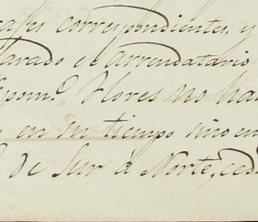 correspondientes, y
arado el arrendatario
Flores no ha
en un tiempo sino en
de Sur á Norte, ced